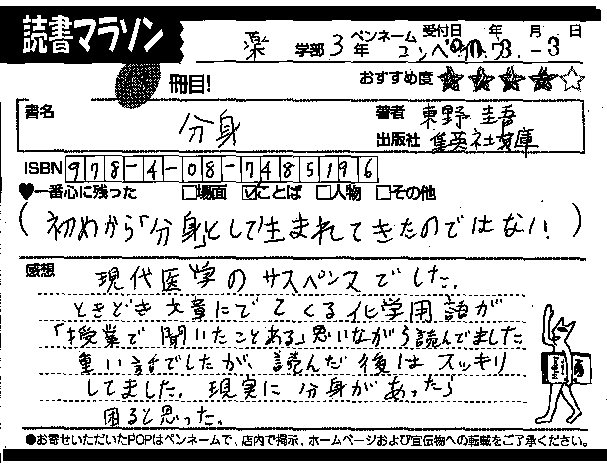 読書マラソン
ペンネーム 受付日 年 月 日
薬 学部 3 年 コンペ
冊目!
おすすめ度 ★★★★☆
書名 分身
著者 東野 圭吾
出版社 集英社文庫
ISBN 978-4-08-7485196
♥一番心に残った □場面 ☑ことば □人物 □その他
(初めから「分身」として生まれてきたのではない!)
感想 現代医学のサスペンスでした.
ときどき文章にでてくる化学用語が
「授業で聞いたことある」思いながら読んでました
重い話でしたが、読んだ後はスッキリ
してました. 現実に分身があったら
困ると思った.
●お寄せいただいたPOPはペンネームで、店内で掲示、ホームページおよび宣伝物への転載をご了承ください。